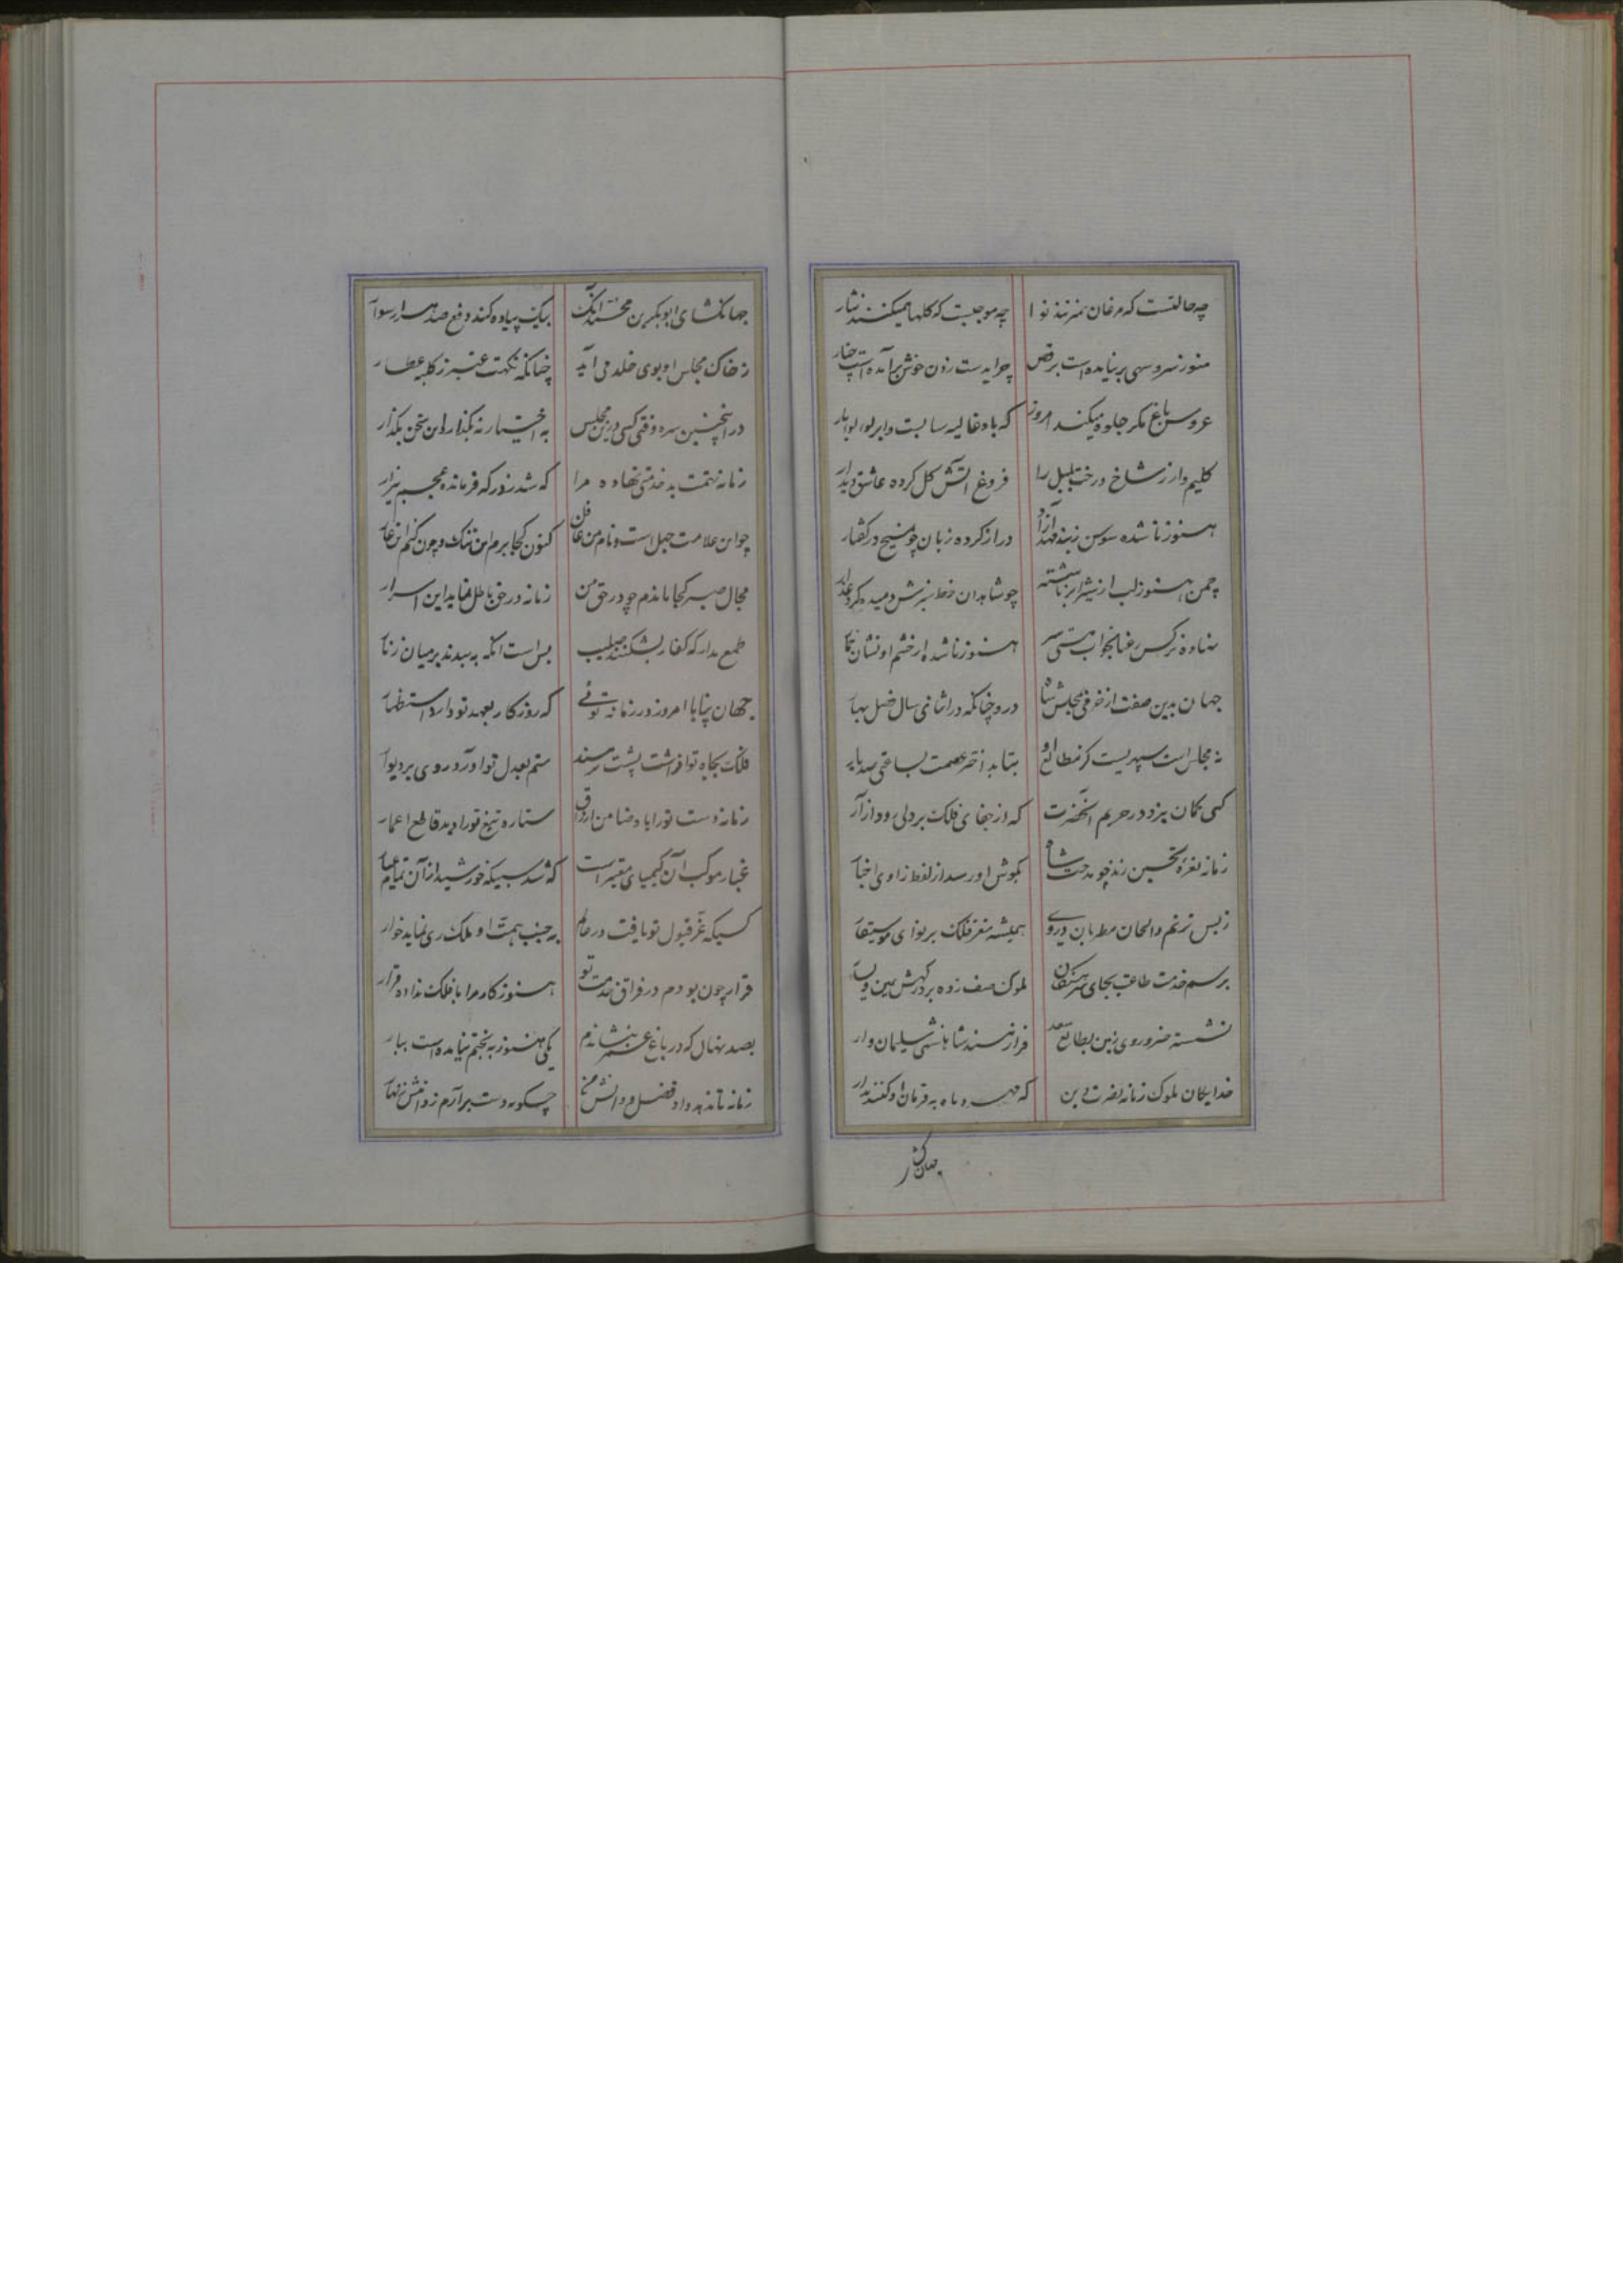 چه حالتست که مرغان همیزنند نوا چه موجبست که گلها همیکنند نثار
هنوز سرو سهی برنیامده است برقص چرا بدست زدن خوش برآمده است چنار
عروس باغ مگر جلوه میکند امروز که باد غالیه سا است و ابر لولو بار
کلیم وار ز شاخ درخت بلبل را فروغ آتش گل کرده عاشق دیدار
هنوز ناشده سوسن ز بند مهد آزاد دراز کرده زبان چو مسیح در گفتار
چمن هنوز لب از شیر ابر ناشسته چو شاهدان خط سبزش دمیده گرد عذار
نهاده نرگس رعنا بخواب مستی سر هنوز ناشده از چشم او نشان خمار
جهان بدین صفت از خرمی مجلس شاه درو چنانکه در اثنای سال فصل بهار
نه مجلس است سپهریست کز مطالع او بتابد اختر عصمت بساعتی صد بار
کسی گمان نبرد در حریم آنحضرت که از جفای فلک بر دلی رود آزار
زمانه نعره تحسین زند چو مدحت شاه بگوش او رسد از لفظ راوی اخبار
ز بس ترنم و الحان مطربان در وی همیشه مغز فلک بر نوای موسیقار
برسم خدمت طاعت بجای سرهنگان ملوک صف زده بر درگهش یمین و یسار
نشسته خسرو روی زمین بطالع سعد فراز مسند شاهنشهی سلیمان وار
خدایگان ملوک زمانه نصرت دین که مهر و ماه به فرمان او کنند مدار
جهان گشا
جهانگشای ابوبکر بن محمد آنک بیک پیاده کند دفع صد هزار سوار
ز خاک مجلس او بوی خلد می آید چنانکه نکهت عنبر ز کلبه عطار
در اینچنین سره وقتی کسی درین مجلس به اختیار نه بگذارد این سخن بگذار
زمانه تهمت بد خدمتی نهاده مرا که شد ز درگه فرمانده عجم بیزار
چو این علامت جهل است و نام من غافل کنون کجا برم این ننگ و چون کنم این عار
مجال صبر کجا ماندم چو در حق من زمانه در حق باطل نماید این اسرار
طمع مدار که کفار بشکنند صلیب بس است آنکه به بندند بر میان زنار
جهان پناها امروز در زمانه توئی که روزگار بعهد تو دارد استظهار
فلک بجاه تو افراشت پشت بر مسند ستم بعدل تو آورد روی بر دیوار
زمانه دست تو را یاد ضامن ارزاق ستاره تیغ تو را دید قاطع اعمار
غبار موکب آن کیمیای معتبر است که شد سبیکه خورشید از آن تمام عیار
کسیکه عز قبول تو یافت در عالم به جنب همت او ملک ری نماید خوار
قرار چون بودم در فراق خدمت تو هنوز کار مرا با فلک نداده قرار
بصد نهال که در باغ عمر بنشاندم یکی هنوز به بختم نیامده است ببار
زمانه تا ندهد داد فضل و دانش من چگونه دست برآرم ز دانش